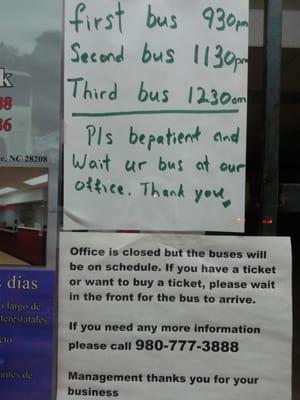 first bus 930pm
Second bus 1130pm
Third bus 1230am
Pls be patient and
Wait ur bus at our
office. Thank you.
k
88
86
e, NC 28208
s días
largo de
terestatales
cto
antes de
Office is closed but the buses will
be on schedule. If you have a ticket
or want to buy a ticket, please wait
in the front for the bus to arrive.
If you need any more information
please call 980-777-3888
Management thanks you for your
business